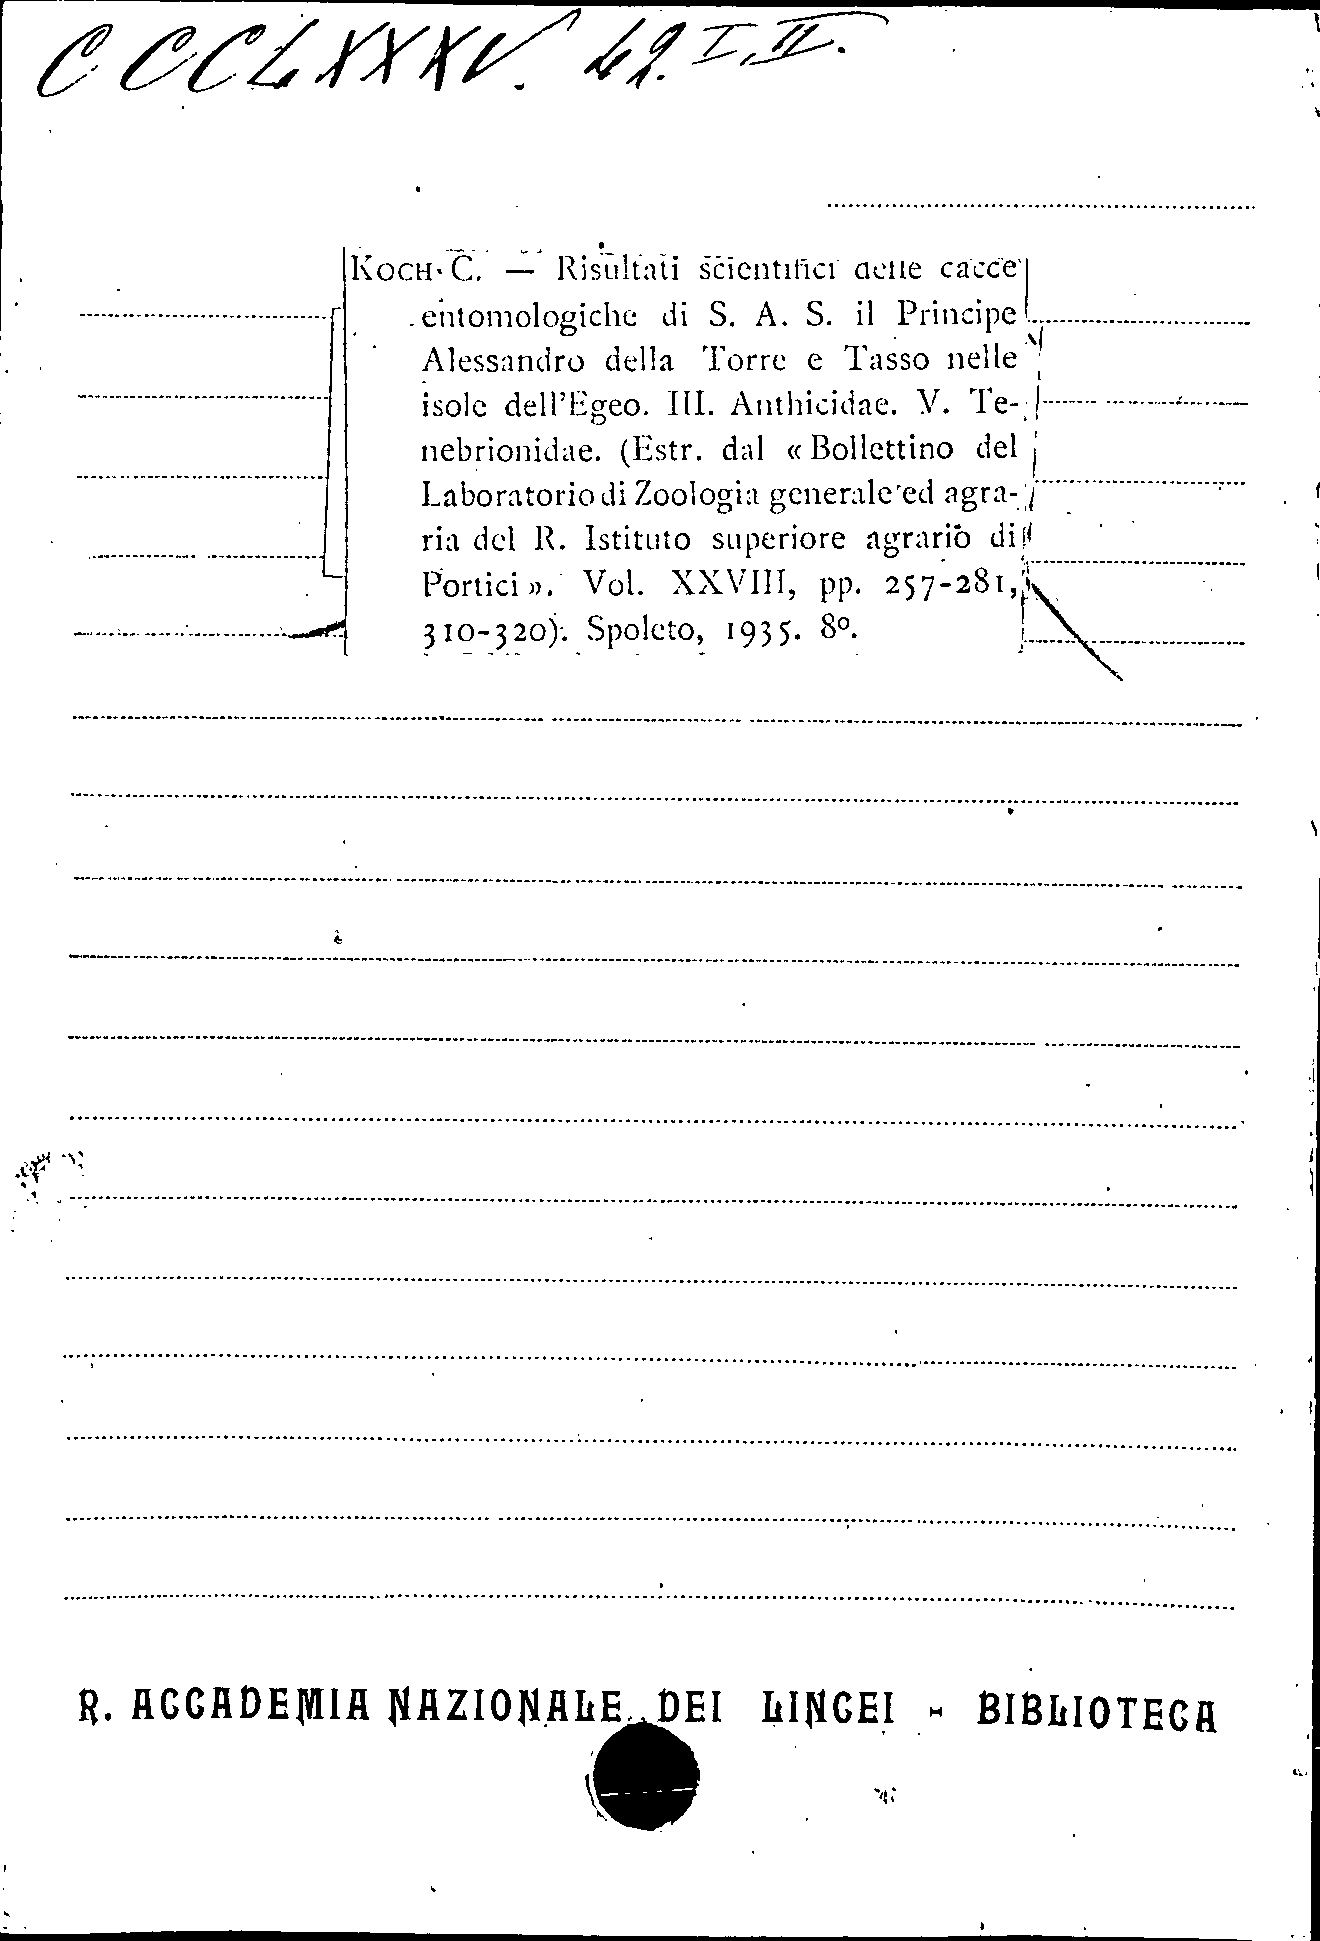 CCCLXXXV. 42. I, II.
KOCH C. — Risultati scientifici delle cacce
entomologiche di S. A. S. il Principe
Alessandro della Torre e Tasso nelle
isole dell'Egeo. III. Anthicidae. V. Te-
nebrionidae. (Estr. dal « Bollettino del
Laboratorio di Zoologia generale ed agra-
ria del R. Istituto superiore agrario di
Portici ». Vol. XXVIII, pp. 257-281,
310-320). Spoleto, 1935. 8º.
R. ACCADEMIA NAZIONALE DEI LINCEI - BIBLIOTECA